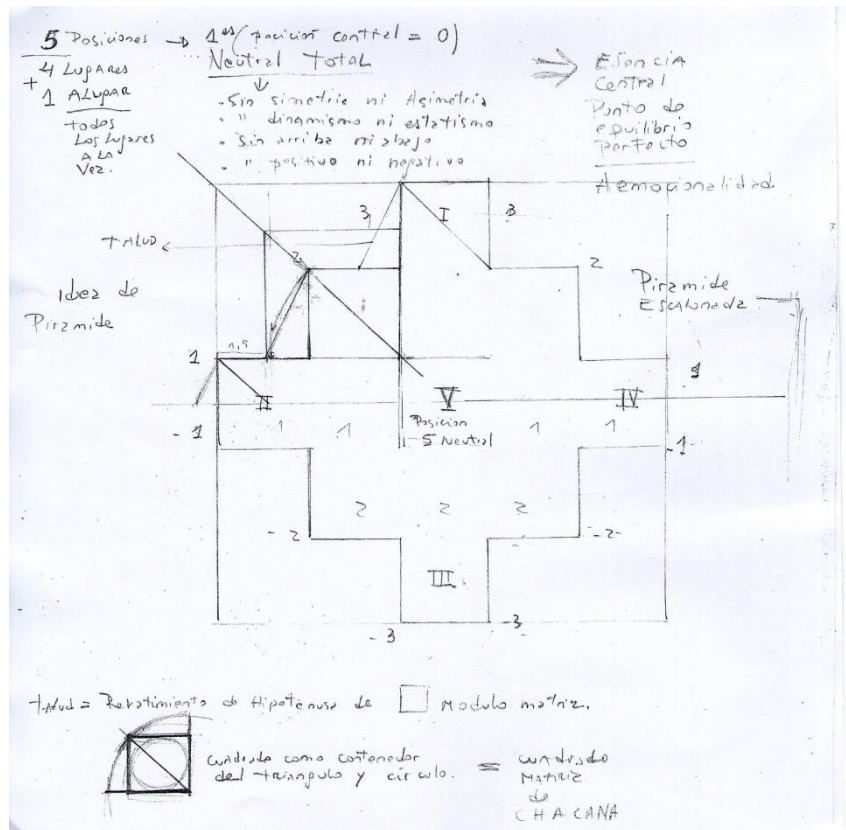 5 Posiciones → 1es (posición central = 0)
4 Lugares
+
1 ALUPAR
Todos
Los Lugares
A LA
Vez.
Neutral Total
↓
. Sin simetria ni Asimetria
. " dinamismo ni estatismo
. Sin arriba ni abajo
. " positivo ni negativo
⇒ Esencia
Central
Punto de
equilibrio
perfecto
Aemocionalidad
3 I 3
TALUD
2 2
Idea de
Piramide
Piramide
Escalonada
1 1,5 1
II V IV
-1 1 1 Posicion 1 1 -1-
5 Neutral
2 2 2
-2 -2-
III
-3 -3
Talud = Rebatimiento de Hipotenusa de □ Modulo matriz.
cuadrado como contenedor
del triangulo y circulo. = cuadrado
MATRIZ
de
CHACANA